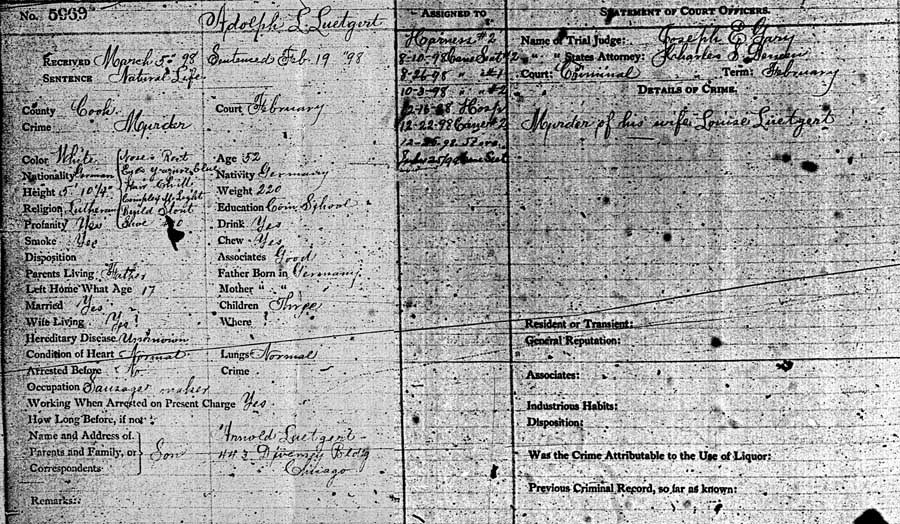 No. 5969
Adolph L Luetgert
RECEIVED March 5 98 Sentenced Feb. 19 "98
SENTENCE Natural Life
County Cook Court February
Crime Murder
Color White Age 52
Nationality German Nativity Germany
Height 5' 10¼" Weight 220
Religion Lutheran Education Com. School
Profanity Yes Drink Yes
Smoke Yes Chew Yes
Disposition Associates Good
Parents Living Father Father Born in Germany
Left Home What Age 17 Mother " " "
Married Yes Children Three
Wife Living Yes? Where ?
Hereditary Disease Unknown
Condition of Heart Normal Lungs Normal
Arrested Before No Crime
Occupation Sausage maker
Working When Arrested on Present Charge Yes
How Long Before, if not
Name and Address of Parents and Family, or Correspondents
Son
Arnold Luetgert
443 Diversey Bldg
Chicago
Remarks:
Build Stout
Shoe
ASSIGNED TO
Harness #2
8-10-98 Cane Seat #2
8-26-98 " #1
10-3-98 " #2
12-16-98 Hosp
12-22-98 Cane #2
STATEMENT OF COURT OFFICERS.
Name of Trial Judge: Joseph E Gary
" " States Attorney: Charles S Deneen
Court: Criminal Term: February
DETAILS OF CRIME.
Murder of his wife Louise Luetgert
Resident or Transient:
General Reputation:
Associates:
Industrious Habits:
Disposition:
Was the Crime Attributable to the Use of Liquor:
Previous Criminal Record, so far as known: